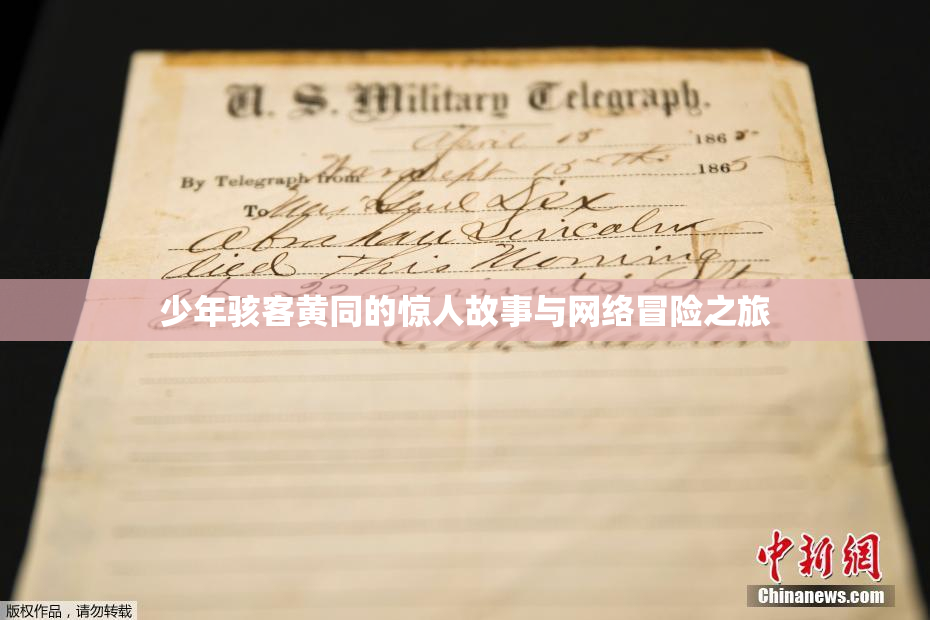 U. S. Military Telegraph.
April 15 1865
By Telegraph from War Dept 15th 1865
To Maj Genl Dix
Abraham Lincoln
died This Morning
at 22 minutes after
少年骇客黄同的惊人故事与网络冒险之旅
中新网
Chinanews.com
版权作品，请勿转载